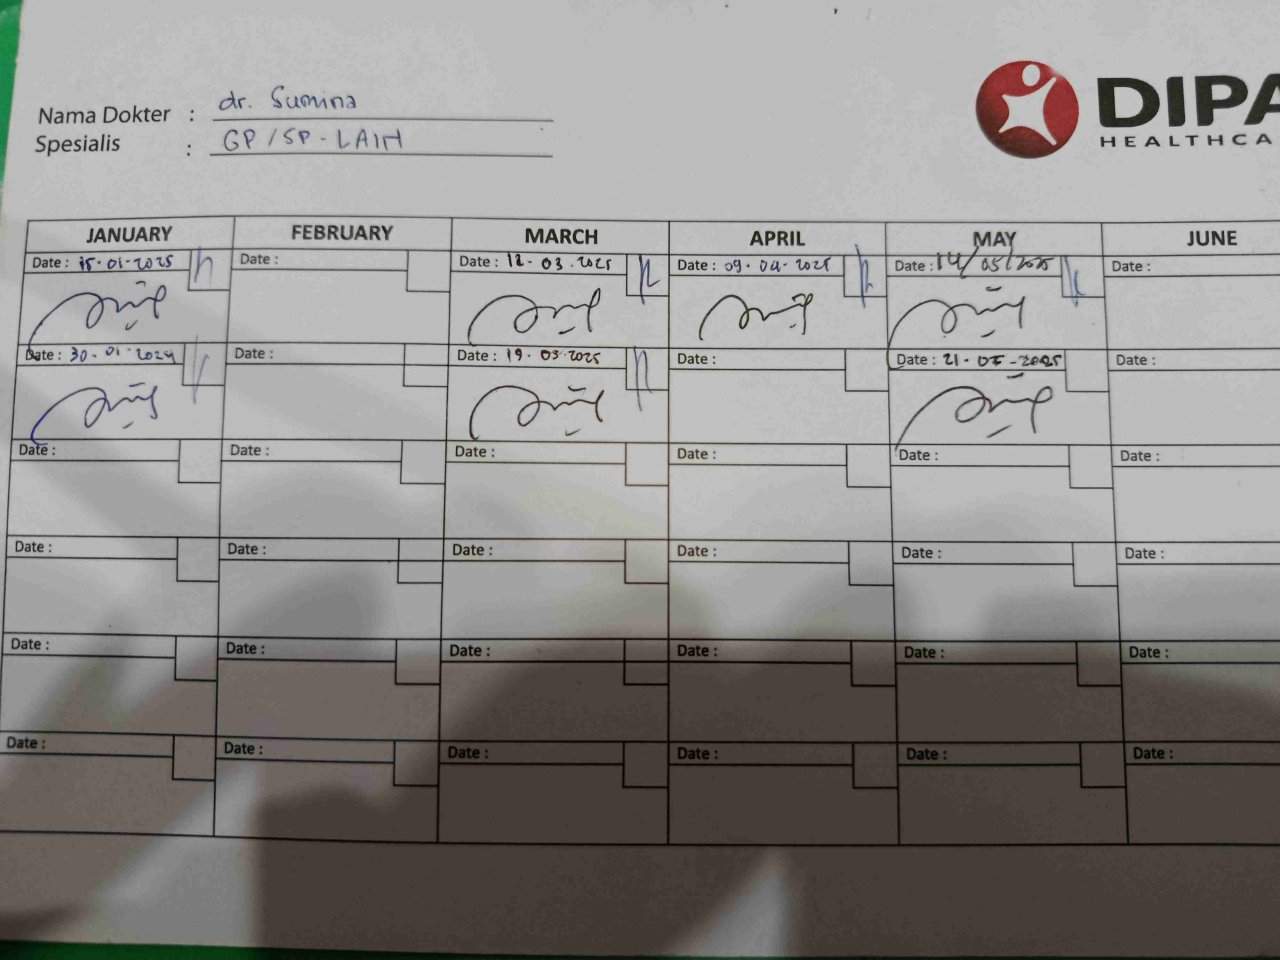 Nama Dokter : dr. Sumina
Spesialis : GP/SP-LAIN
DIPA
HEALTHCA
JANUARY FEBRUARY MARCH APRIL MAY JUNE
Date : 15-01-2025 Date : Date : 12-03-2025 Date : 09-04-2025 Date : 14/05/2025 Date :
Date : 30-01-2024 Date : Date : 19-03-2025 Date : Date : 21-05-2025 Date :
Date : Date : Date : Date : Date : Date :
Date : Date : Date : Date : Date : Date :
Date : Date : Date : Date : Date : Date :
Date : Date : Date : Date : Date : Date :